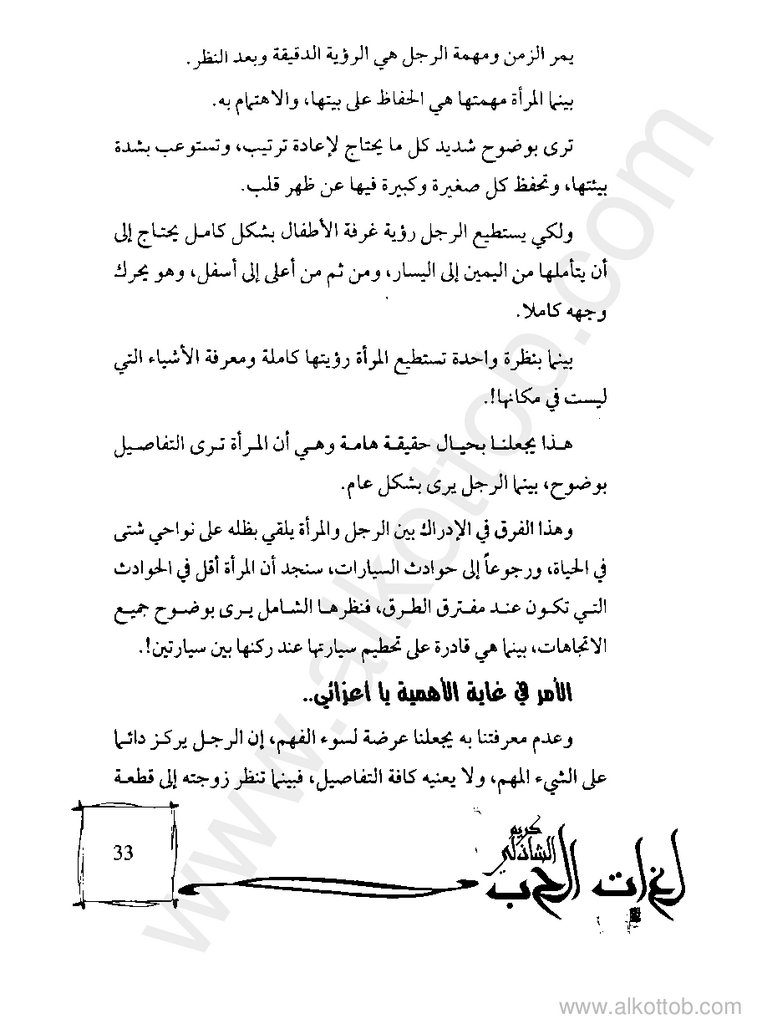 يمر الزمن ومهمة الرجل هي الرؤية الدقيقة وبعد النظر.
بينما المرأة مهمتها هي الحفاظ على بيتها، والاهتمام به.
ترى بوضوح شديد كل ما يحتاج لإعادة ترتيب، وتستوعب بشدة
بيئتها، وتحفظ كل صغيرة وكبيرة فيها عن ظهر قلب.
ولكي يستطيع الرجل رؤية غرفة الأطفال بشكل كامل يحتاج إلى
أن يتأملها من اليمين إلى اليسار، ومن ثم من أعلى إلى أسفل، وهو يحرك
وجهه كاملا.
بينما بنظرة واحدة تستطيع المرأة رؤيتها كاملة ومعرفة الأشياء التي
ليست في مكانها!.
هذا يجعلنا بحيال حقيقة هامة وهي أن المرأة ترى التفاصيل
بوضوح، بينما الرجل يرى بشكل عام.
وهذا الفرق في الإدراك بين الرجل والمرأة يلقي بظله على نواحي شتى
في الحياة، ورجوعاً إلى حوادث السيارات، سنجد أن المرأة أقل في الحوادث
التي تكون عند مفترق الطرق، فنظرها الشامل يرى بوضوح جميع
الاتجاهات، بينما هي قادرة على تحطيم سيارتها عند ركنها بين سيارتين!.
الأمر في غاية الأهمية يا أعزائي..
وعدم معرفتنا به يجعلنا عرضة لسوء الفهم، إن الرجل يركز دائما
على الشيء المهم، ولا يعنيه كافة التفاصيل، فبينما تنظر زوجته إلى قطعة
كريم
الشاذلي
لغات الحب
33
www.alkottob.com
www.alkottob.com